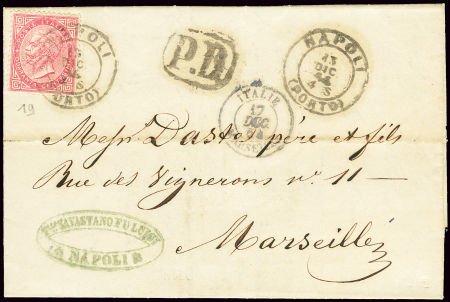 NAPOLI
13
DIC
(PORTO)
P.D.
NAPOLI
13
DIC
64
4 S
(PORTO)
ITALIE
17
DEC.
64
MARSEILLE
19
Messrs. Dastot père et fils
Rue des Vignerons n° 11 —
Marseille
NAPOLI